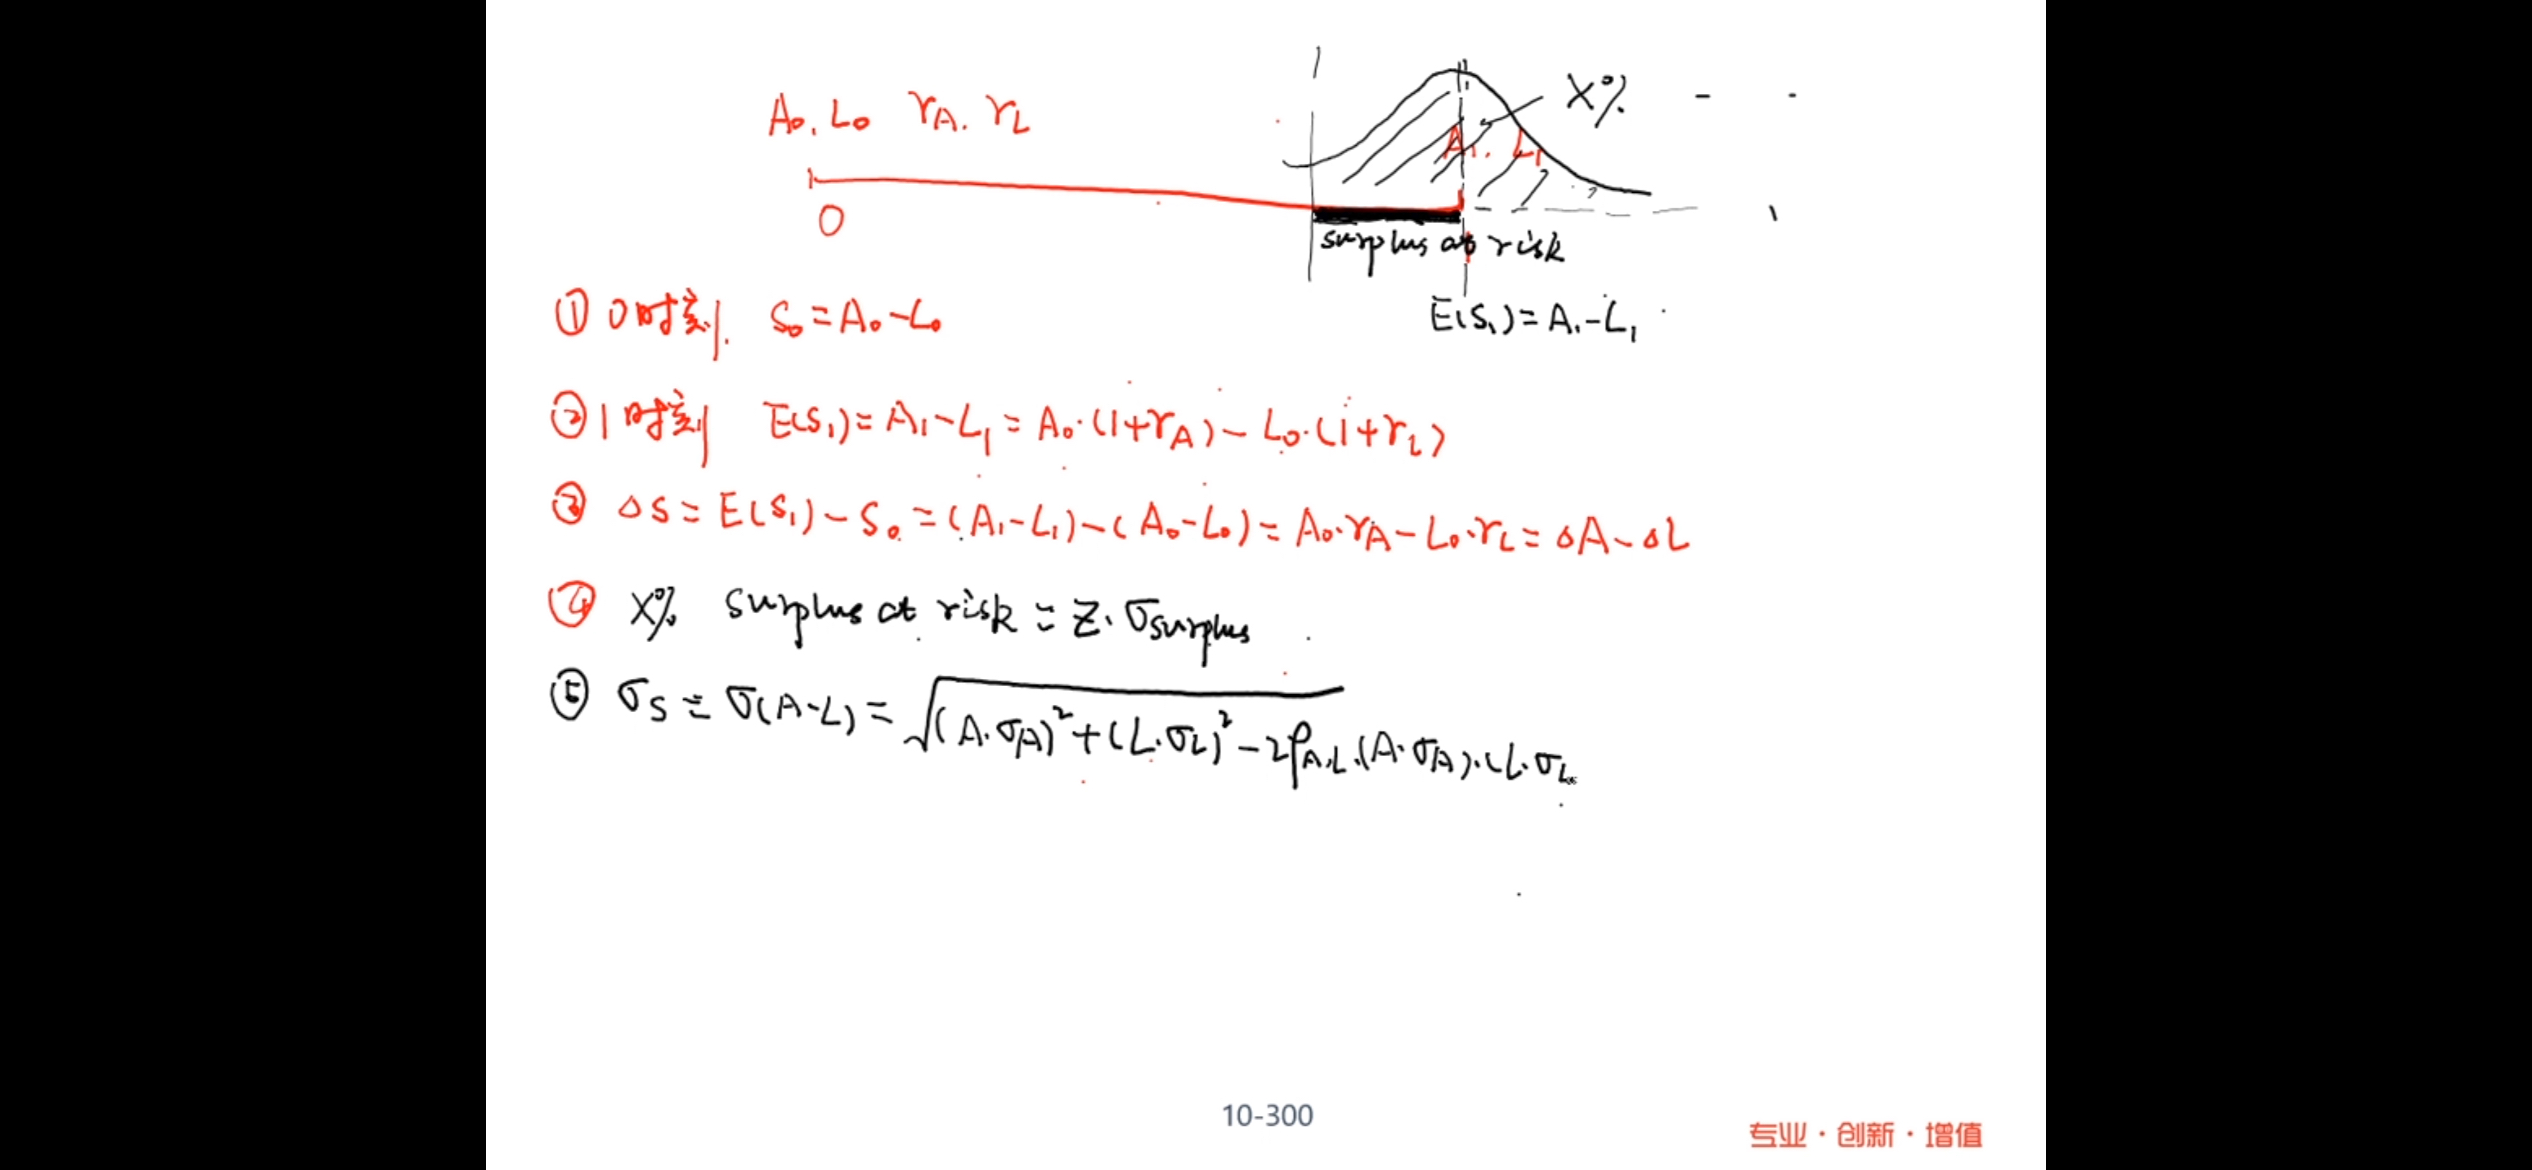 A₀. L₀ r_A. r_L
X%
A₁. L₁
0
surplus at risk
E(S₁) = A₁ - L₁
① 0时刻. S₀ = A₀ - L₀
② 1时刻 E(S₁) = A₁ - L₁ = A₀·(1+r_A) - L₀·(1+r_L)
③ △S = E(S₁) - S₀ = (A₁-L₁) - (A₀-L₀) = A₀·r_A - L₀·r_L = △A - △L
④ X% surplus at risk = Z·σ_surplus
⑤ σ_S = σ(A-L) = √(A·σ_A)² + (L·σ_L)² - 2ρ_A,L·(A·σ_A)·(L·σ_L
10-300
专业·创新·增值